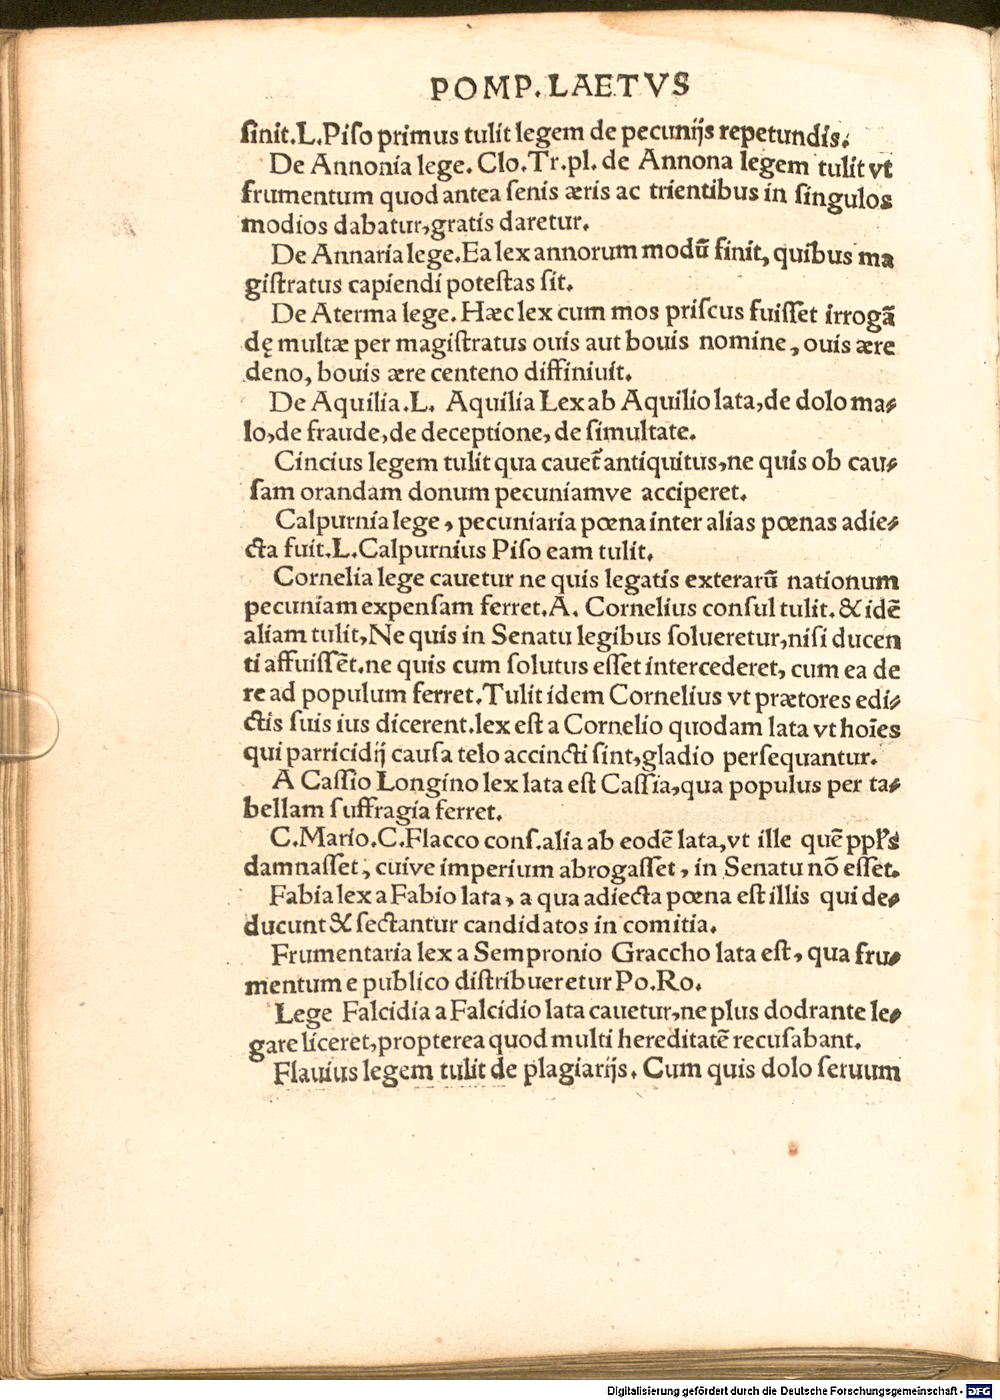 POMP. LAETVS
ſinit. L. Piſo primus tulit legem de pecunijs repetundis.
De Annonia lege. Clo. Tr. pl. de Annona legem tulit vt
frumentum quod antea ſenis æris ac trientibus in ſingulos
modios dabatur, gratis daretur.
De Annaria lege. Ea lex annorum modū finit, quibus ma
giſtratus capiendi poteſtas ſit.
De Aterma lege. Hæc lex cum mos priſcus fuiſſet irrogā
dę multæ per magiſtratus ouis aut bouis nomine, ouis ære
deno, bouis ære centeno diffiniuit.
De Aquilia. L. Aquilia Lex ab Aquilio lata, de dolo ma⸗
lo, de fraude, de deceptione, de ſimultate.
Cincius legem tulit qua cauet᷑ antiquitus, ne quis ob cau⸗
ſam orandam donum pecuniamve acciperet.
Calpurnia lege, pecuniaria pœna inter alias pœnas adie⸗
cta fuit. L. Calpurnius Piſo eam tulit.
Cornelia lege cauetur ne quis legatis exterarū nationum
pecuniam expenſam ferret. A. Cornelius conſul tulit. & idē
aliam tulit, Ne quis in Senatu legibus ſolueretur, niſi ducen
ti affuiſſēt. ne quis cum ſolutus eſſet intercederet, cum ea de
re ad populum ferret. Tulit idem Cornelius vt prætores edi⸗
ctis ſuis ius dicerent. lex eſt a Cornelio quodam lata vt hoīes
qui parricidij cauſa telo accincti ſint, gladio perſequantur.
A Caſſio Longino lex lata eſt Caſſia, qua populus per ta⸗
bellam ſuffragia ferret.
C. Mario. C. Flacco conſ. alia ab eodē lata, vt ille quē ppl's
damnaſſet, cuive imperium abrogaſſet, in Senatu nō eſſet.
Fabia lex a Fabio lata, a qua adiecta pœna eſt illis qui de⸗
ducunt & ſectantur candidatos in comitia.
Frumentaria lex a Sempronio Graccho lata eſt, qua fru⸗
mentum e publico diſtribueretur Po. Ro.
Lege Falcidia a Falcidio lata cauetur, ne plus dodrante le⸗
gare liceret, propterea quod multi hereditatē recuſabant.
Flauius legem tulit de plagiarijs. Cum quis dolo ſeruum
Digitalisierung gefördert durch die Deutsche Forschungsgemeinschaft - DFG